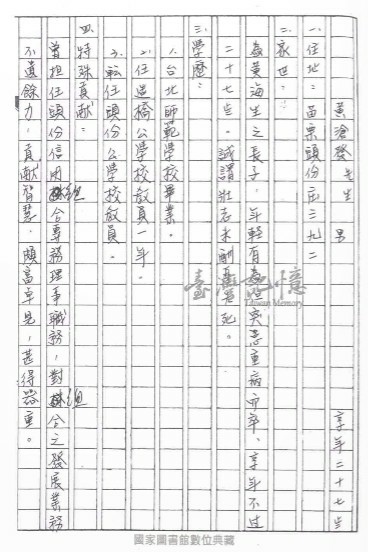 黃滄發先生 男 享年二十七岁
一、住址：苗栗頭份庄三九二
二、家世：
為黃海生之長子，年輕有為但突患重病而卒、享年不过
二十七岁。誠謂壯志未酬身先死。
三、學歷：
1.台北師範學校畢業。
2.任造橋公學校教員一年。
3.転任頭份公學校教員。
四、特殊貢献：
曾担任頭份信用組合專務理事職務，對組合之發展業務
不遺餘力，貢献智慧，頗富卓見，甚得器重。
臺灣記憶
Taiwan Memory
國家圖書館數位典藏